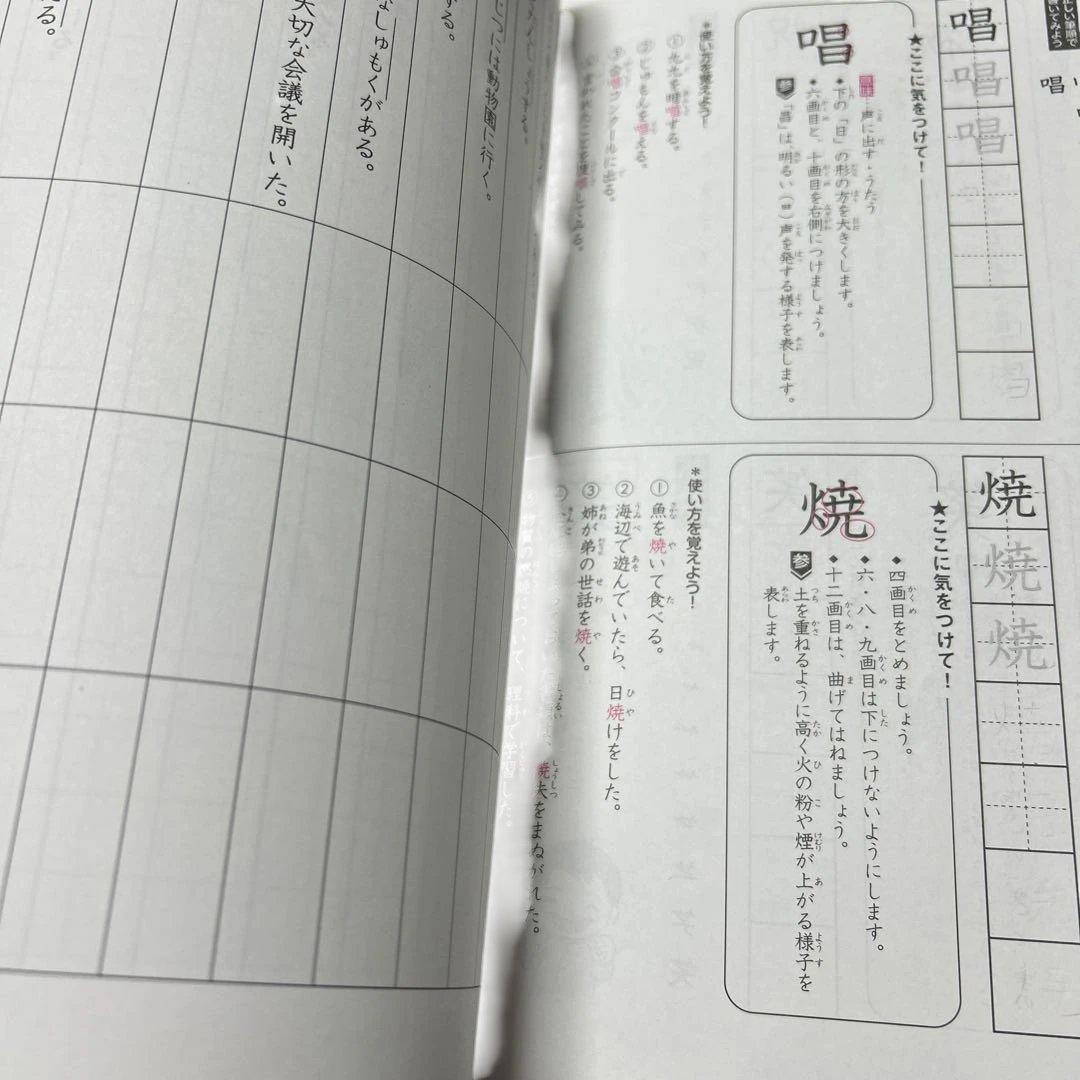 正しい筆順で
書いてみよう
唱
唱
唱
唱
★ここに気をつけて！
唱
意味 声に出す・うたう
◆下の「日」の形の方を大きくします。
◆六画目と、十画目を右側につけましょう。
参 「昌」は、明るい（日）声を発する様子を表します。
＊使い方を覚えよう！
① 九九を暗唱する。
② じゅもんを唱える。
③ 合唱コンクールに出る。
焼
焼
焼
★ここに気をつけて！
焼
◆四画目をとめましょう。
◆六・八・九画目は下につけないようにします。
◆十二画目は、曲げてはねましょう。
参 土を重ねるように高く火の粉や煙が上がる様子を
表します。
＊使い方を覚えよう！
① 魚を焼いて食べる。
② 海辺で遊んでいたら、日焼けをした。
③ 姉が弟の世話を焼く。
焼失をまぬがれた。
について、理科で学習した。
には動物園に行く。
する。
しゅもくがある。
大切な会議を開いた。
る。